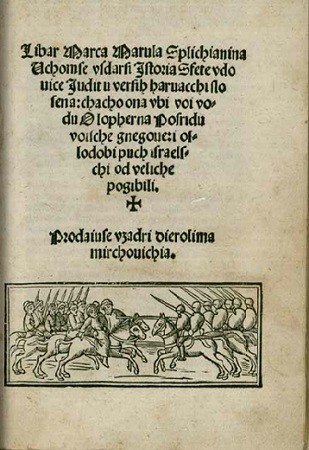 Libar Marca Marula Splichianina
Uchomse vsdarsi Istoria Sfete vdo
uice Judit u versih haruacchi slo
sena: chacho ona vbi voi vo-
du Olopherna Posridu
voische gnegoue: i os-
lodobi puch israels-
chi od veliche
pogibili.
✠
Prodaiuse vzadri dierolima
mirchouichia.